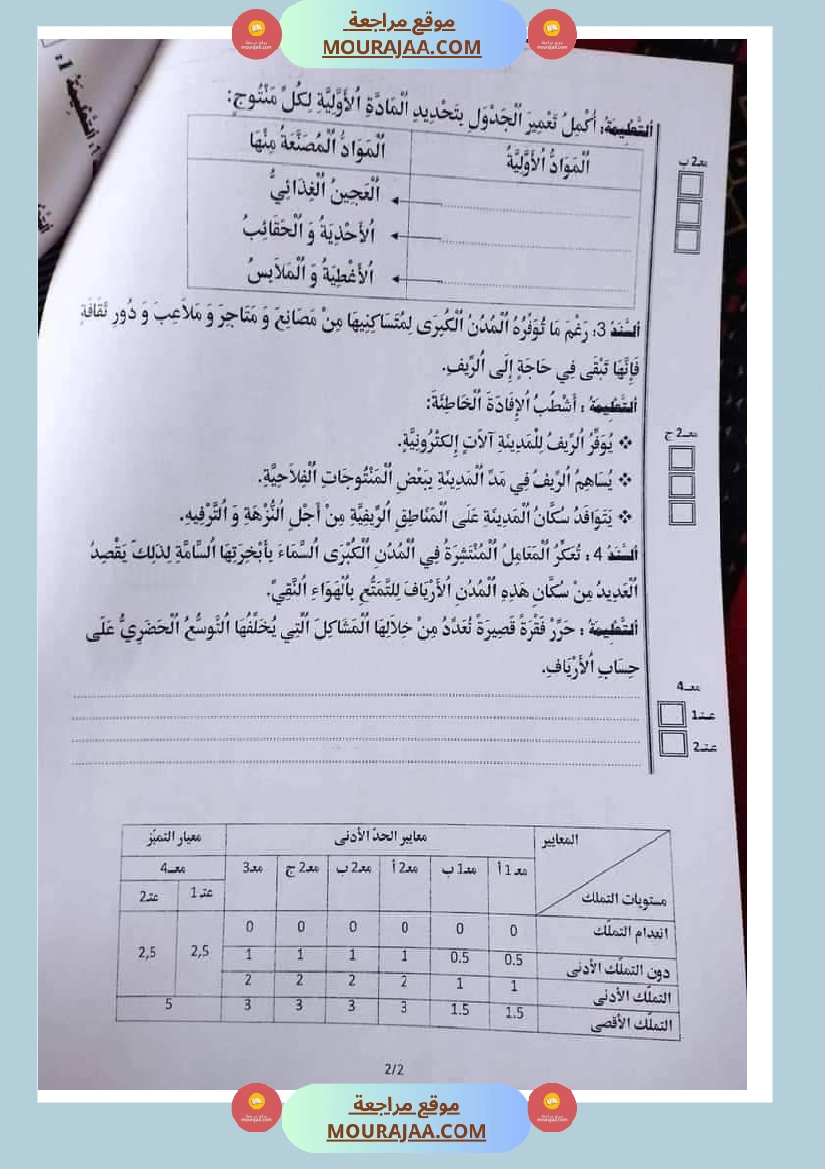 موقع مراجعة
MOURAJAA.COM
التعليمة 1:
التَّعليمة: أُكْمِلُ تَعْمِيرَ الْجَدْوَلِ بِتَحْدِيدِ الْمَادَّةِ الْأَوَّلِيَّةِ لِكُلِّ مَنْتُوجٍ:
معـ2 ب
الْمَوَادُّ الْأَوَّلِيَّةُ
الْمَوَادُّ الْمُصَنَّعَةُ مِنْهَا
الْعَجِينُ الْغِذَائِيُّ
الْأَحْذِيَةُ وَ الْحَقَائِبُ
الْأَغْطِيَةُ وَ الْمَلَابِسُ
السَّنَدُ 3: رَغْمَ مَا تُوَفِّرُهُ الْمُدُنُ الْكُبْرَى لِمُتَسَاكِنِيهَا مِنْ مَصَانِعَ وَ مَتَاجِرَ وَ مَلَاعِبَ وَ دُورِ ثَقَافَةٍ
فَإِنَّهَا تَبْقَى فِي حَاجَةٍ إِلَى الرِّيفِ.
التَّعليمة : أَشْطُبُ الْإِفَادَةَ الْخَاطِئَةَ:
معـ2 ج
❖ يُوَفِّرُ الرِّيفُ لِلْمَدِينَةِ آلَاتٍ إِلِكْتْرُونِيَّةٍ.
❖ يُسَاهِمُ الرِّيفُ فِي مَدِّ الْمَدِينَةِ بِبَعْضِ الْمَنْتُوجَاتِ الْفِلَاحِيَّةِ.
❖ يَتَوَافَدُ سُكَّانُ الْمَدِينَةِ عَلَى الْمَنَاطِقِ الرِّيفِيَّةِ مِنْ أَجْلِ النُّزْهَةِ وَ التَّرْفِيهِ.
السَّنَدُ 4 : تُعَكِّرُ الْمَعَامِلُ الْمُنْتَشِرَةُ فِي الْمُدُنِ الْكُبْرَى السَّمَاءَ بِأَبْخِرَتِهَا السَّامَّةِ لِذَلِكَ يَقْصِدُ
الْعَدِيدُ مِنْ سُكَّانِ هَذِهِ الْمُدُنِ الْأَرْيَافَ لِلتَّمَتُّعِ بِالْهَوَاءِ النَّقِيِّ.
التَّعليمة : حَرِّرْ فَقْرَةً قَصِيرَةً تُعَدِّدُ مِنْ خِلَالِهَا الْمَشَاكِلَ الَّتِي يُخَلِّفُهَا التَّوَسُّعُ الْحَضَرِيُّ عَلَى
حِسَابِ الْأَرْيَافِ.
معـ4
عتـ1
عتـ2
المعايير
معايير الحدّ الأدنى
معيار التميّز
مستويات التملك
معـ1 أ معـ1 ب معـ2 أ معـ2 ب معـ2 ج معـ3 معـ4
عتـ1 عتـ2
انعدام التملّك 0 0 0 0 0 0
دون التملّك الأدنى 0.5 0.5 1 1 1 1 2,5 2,5
التملّك الأدنى 1 1 2 2 2 2
التملّك الأقصى 1.5 1.5 3 3 3 3 5
2/2
موقع مراجعة
MOURAJAA.COM